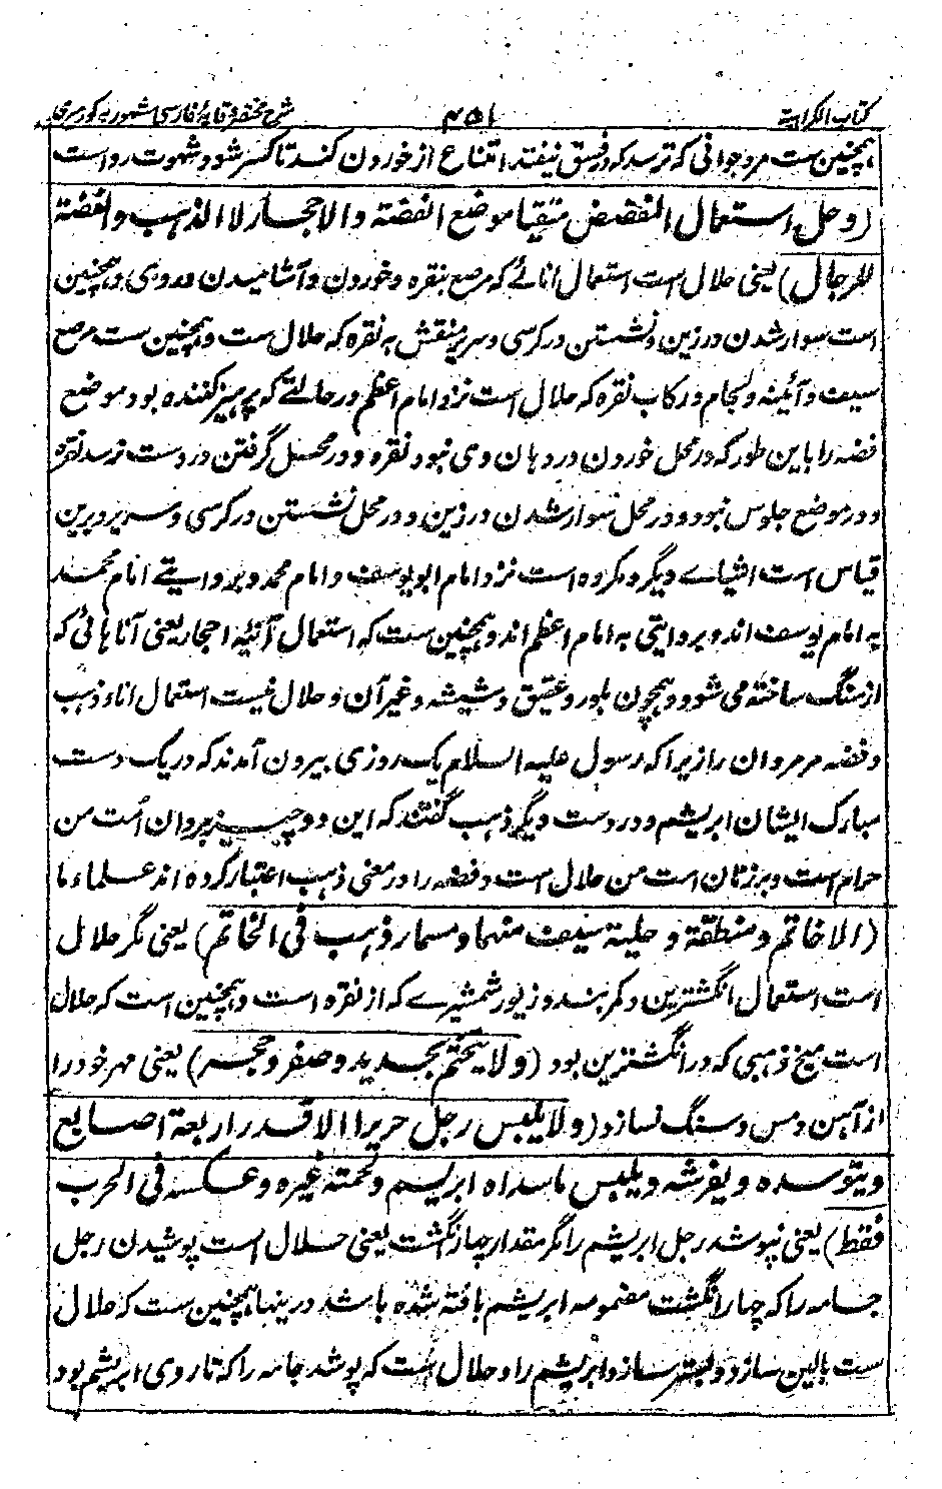 کتاب الکراہیۃ ۴۵۱ شرح مختصر وقایہ فارسی مشہور بہ کور میری
ہمچنین ست مرد جوانی کہ ترسد کہ در فسق نیفتد امتناع از خوردن کند تا کسر شود شہوت رواست
(وحل استعمال المفضض متقیا موضع الفضۃ والاحجار لا الذہب والفضۃ
للرجال) یعنی حلال است استعمال انائے کہ مرصع بنقرہ و خوردن و آشامیدن در وی و ہمچنین
است سوار شدن در زین و نشستن در کرسی و سریر منقش بہ نقرہ کہ حلال ست و ہمچنین ست مرصع
سیف و آئینہ و لجام و رکاب نقرہ کہ حلال است نزد امام اعظم در حالتے کہ پرہیز کنندہ بود موضع
فضہ را باین طور کہ در محل خوردن در دہان وی نبود نقرہ و در محل گرفتن در دست نرسد نقرہ
و در موضع جلوس نبود و در محل سوار شدن در زین و در محل نشستن در کرسی و سریر و برین
قیاس است اشیائے دیگر و مکروہ است نزد امام ابو یوسف و امام محمد و بروایتے امام محمد
بہ امام یوسف اند و بروایتی بہ امام اعظم اند و ہمچنین ست کہ استعمال آنیۂ احجار یعنی آناہائی کہ
از سنگ ساختہ می شود و ہمچون بلور و عقیق و شیشہ و غیر آن و حلال نیست استعمال اناء ذہب
و فضہ مر مردان را زیرا کہ رسول علیہ السلام یک روزی بیرون آمدند کہ در یک دست
مبارک ایشان ابریشم و در دست دیگر ذہب گفتند کہ این دو چیز بر مردان امت من
حرام است و بر زنان امت من حلال است و فضہ را در معنی ذہب اعتبار کردہ اند علماء ما
(الا خاتم و منطقۃ و حلیۃ سیف منہا و مسمار ذہب فی الخاتم) یعنی مگر حلال
است استعمال انگشترین و کمر بند و زیور شمشیرے کہ از نقرہ است و ہمچنین است کہ حلال
است میخ ذہبی کہ در انگشترین بود (ولا یتختم بحدید وصفر وحجر) یعنی مہر خود را
از آہن و مس و سنگ نسازد (ولا یلبس رجل حریرا الا قدر اربعۃ اصابع
ویتوسدہ ویفرشہ ویلبس ماسداہ ابریسم ولحمتہ غیرہ وعکسہ فی الحرب
فقط) یعنی نپوشد رجل ابریشم را مگر مقدار چہار انگشت یعنی حلال است پوشیدن رجل
جامہ را کہ چہار انگشت مضمومہ ابریشم بافتہ شدہ باشد درینہا ہمچنین ست کہ حلال
ست بالین سازد و بستر سازد ابریشم را و حلال است کہ پوشد جامہ را کہ تار وی ابریشم بود